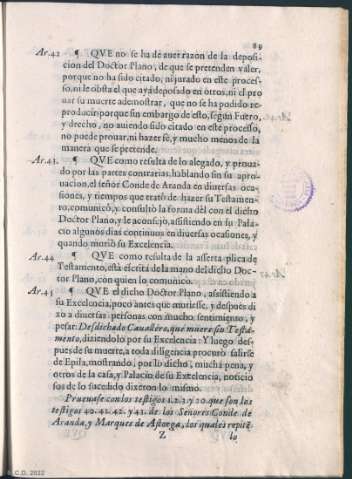 89
Ar.42 ¶ QVE no se ha de auer razon de la deposi-
cion del Doctor Plano, de que se pretenden valer,
porque no ha sido citado, ni jurado en este proces-
so, ni le obsta el que aya deposado en otros, ni el pro
uar su muerte ademostrar, que no se ha podido re-
producir porque sin embargo de esto, según Fuero,
y drecho, no auiendo sido citado en este processo,
no puede prouar, ni hazer feè, y mucho menos de la
manera que se pretende.
Ar.43. ¶ QVE como resulta de lo alegado, y prouado
do por las partes contrarias, hablando sin su apro-
uacion, el señor Conde de Aranda en diuersas oca-
siones, y tiempos que tratò de hazer su Testamen-
to, comunicò, y consultò la forma dèl con el dicho
Doctor Plano, y le aconsejo, assistiendo en su Pala-
cio algunos dias continuos en diuersas ocasiones, y
quando muriò su Excelencia.
Ar.44 ¶ QVE como resulta de la asserta plica de
Testamento, està escrita de la mano del dicho Doc-
tor Plano, con quien lo comunico.
Ar.45 ¶ QVE el dicho Doctor Plano, assistiendo a
su Excelencia, poco antes que muriesse, y despues di-
xo a diuersas personas con mucho sentimiento, y
pesar: Desdichado Cauallero, que muere sin Testa-
mento, diziendolo por su Excelencia: Y luego des-
pues de su muerte, a toda diligencia procurò salirse
de Epila, mostrando, por lo dicho, mucha pena, y
otros de la casa, y Palacio de su Excelencia, noticio
sos de lo sucedido dixeron lo mismo.
Prueuase con los testigos 1. 2. 3. y 20. que son los
testigos 40. 41. 42. y 43. de los Señores Conde de
Aranda, y Marques de Astorga, los quales repitē.
Z lo
C.D. 2022